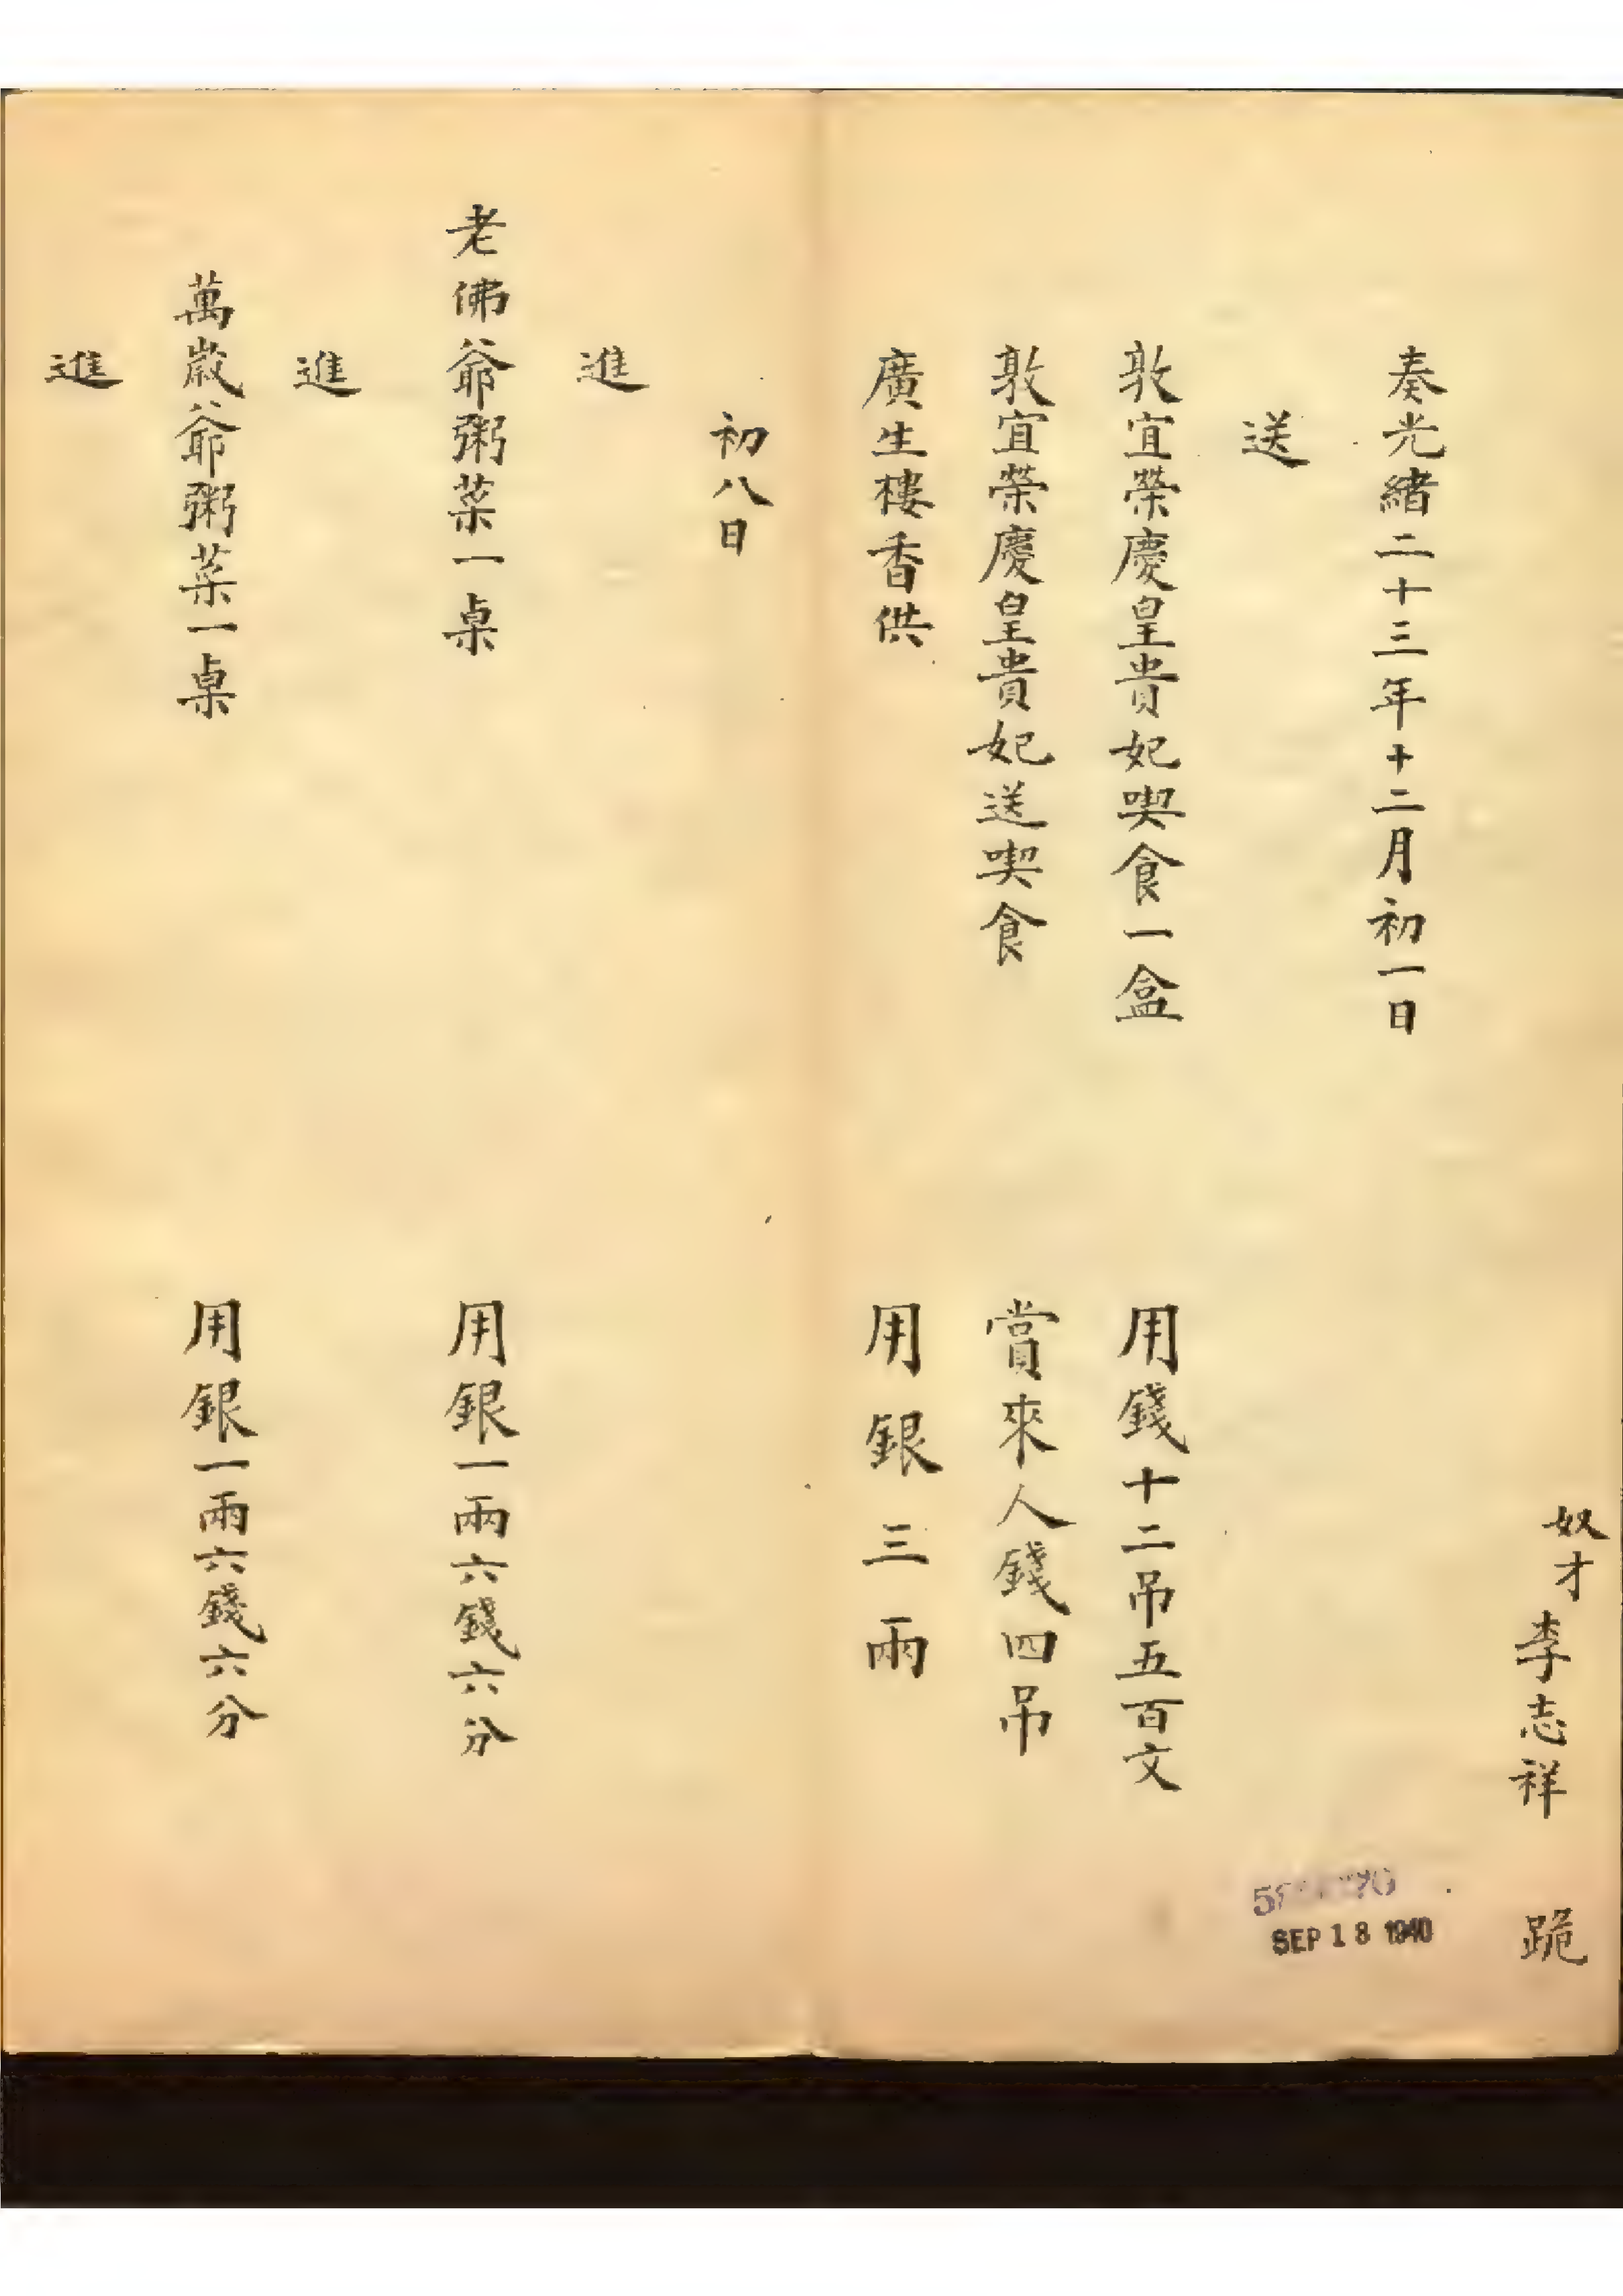 奴才李志祥 跪
奏光緒二十三年十二月初一日
送
敦宜榮慶皇貴妃喫食一盒 用錢十二吊五百文
敦宜榮慶皇貴妃送喫食 賞來人錢四吊
廣生樓香供 用銀三兩
初八日
進
老佛爺粥菜一桌 用銀一兩六錢六分
進
萬歲爺粥菜一桌 用銀一兩六錢六分
進
SEP 18 1940